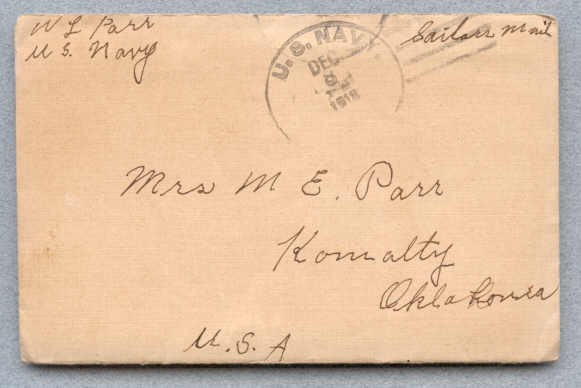 W L Parr
U S. Navy
U.S. NAVY
DEC
1918
Sailors Mail
Mrs M E. Parr
Komalty
Oklahoma
U.S.A